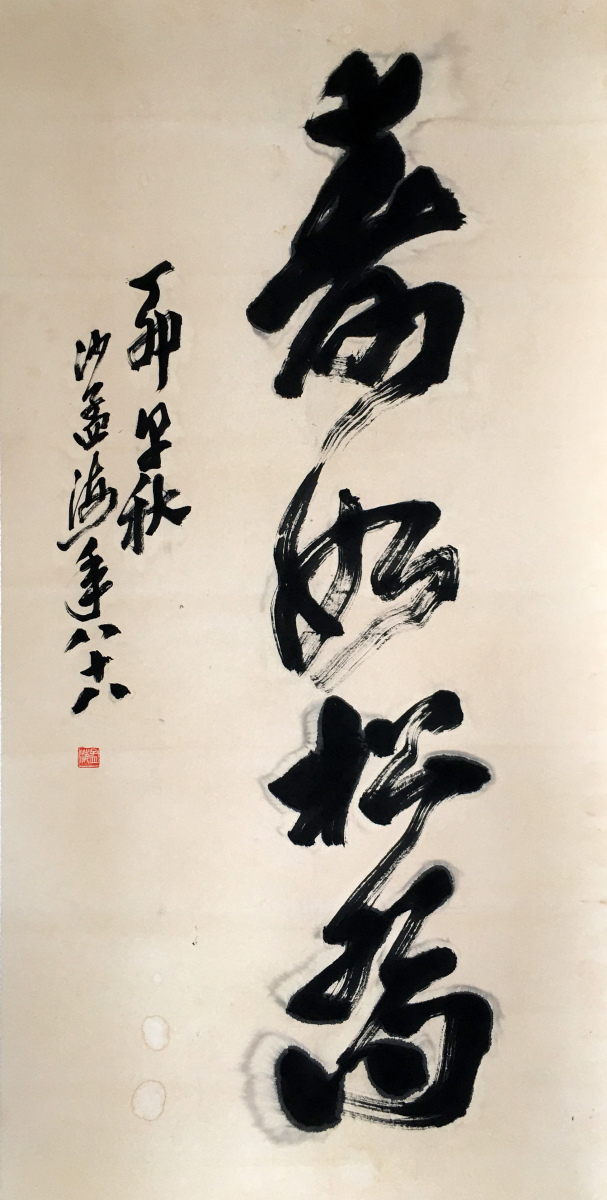 壽如松喬
丁卯早秋
沙孟海年八十八